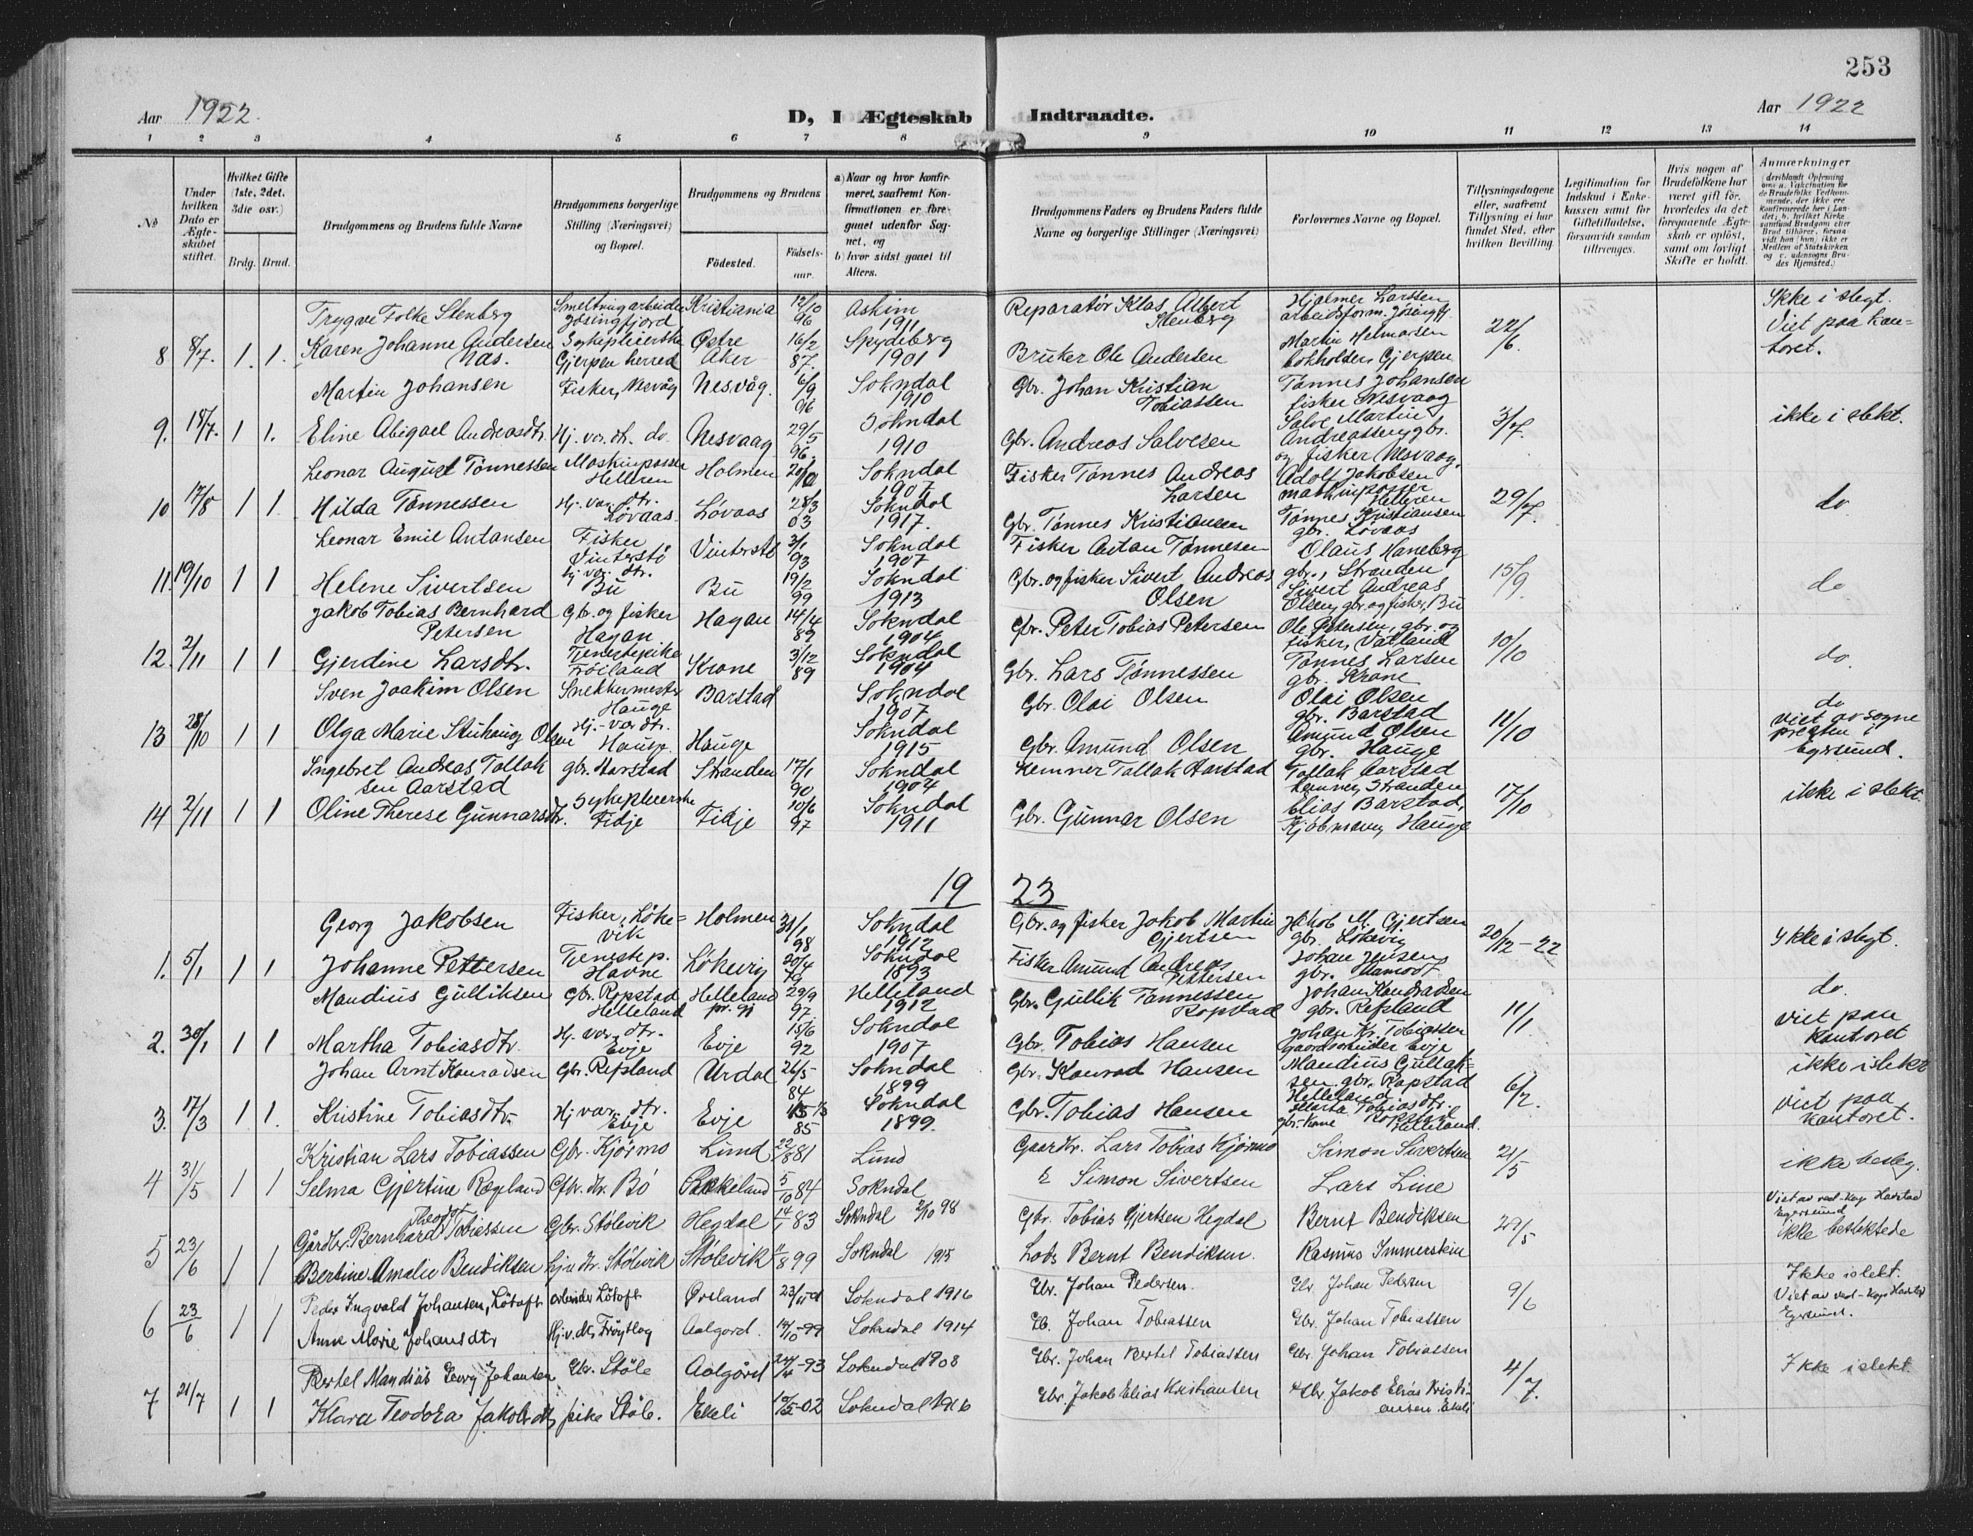 253
Aar 1922. D, I Ægteskab Indtraadte. Aar 1922
1 2 3 4 5 6 7 8 9 10 11 12 13 14
№
Under hvilken Dato er Ægteskabet stiftet.
Hvilket Gifte (1ste, 2det, 3die osv.)
Brdg. Brud.
Brudgommens og Brudens fulde Navne
Brudgommens borgerlige Stilling (Næringsvei) og Bopæl.
Brudgommens og Brudens
Fødested. Fødselsaar.
a) Naar og hvor konfirmeret, saafremt Konfirmationen er foregaaet udenfor Sognet, og
b) hvor sidst gaaet til Alters.
Brudgommens Faders og Brudens Faders fulde Navne og borgerlige Stillinger (Næringsvei)
Forlovernes Navne og Bopæl.
Tillysningsdagene eller, saafremt Tillysning ei har fundet Sted, efter hvilken Bevilling.
Legitimation for Indskud i Enkekassen samt for Giftetilladelse, forsaavidt saadan tiltrænges.
Hvis nogen af Brudefolkene har været gift før, hvorledes da det foregaaende Ægteskab er opløst, samt om lovligt Skifte er holdt.
Anmærkninger
Trygve Folke Stenberg Smeltningarbeider Jøsingfjord Kristiania 12/10 96 Askim 1911 Reparatør Klas Albert Stenberg Hjalmer Larssen arbeidsform. Jøsingfj. Ikke i slegt.
8 8/7. 1. 1. Karen Johanne Andersen Næs. Sykepleierske Gjerpen herred Østre Aker 16/2 87. Spydeberg 1901 Bruker Ole Andersen Martin Helmarsen Gjerpen 22/6. Viet paa kantoret.
Martin Johansen Fisker, Nesvåg Nesvåg. 6/9 96 Sokndal 1910 Gbr. Johan Kristian Tobiassen Tønnes Johansen fisker Nesvaag
9. 18/7. 1 1. Eline Abigael Andreasdtr. Hj. vær. dtr. do. Nesvaag 29/5 96. Sokndal 1910 Gbr. Andreas Salvesen Salve Martin Andreassen, gbr. og fisker Nesvaag. 3/7. ikke i slekt.
Leonar August Tønnessen Maskinpasser Helleren Holmen Sokndal 1907 Fisker Tønnes Andreas Larsen Adolf Jakobsen maskinpasser Helleren
10 17/8 1 1 Hilda Tønnessen Hj. vær. dtr. Løvaas Løvaas 28/3 03 Sokndal 1917. Gbr. Tønnes Kristiansen Tønnes Kristiansen gbr. Løvaas 29/7. do
Leonar Emil Antansen Fisker Vinterstø Vinterstø 3/1 93 Sokndal 1907 Fisker Antan Tønnesen Olaus Haneberg gbr., Stranden
11. 19/10 1 1 Helene Sivertsen hj. vær. dtr. Bu Bu 19/2 99 Sokndal 1913 Gbr. og fisker Sivert Andreas Olsen Sivert Andreas Olsen, gbr. og fisker, Bu 15/9 do
Jakob Tobias Bernhard Petersen Gb. og fisker Hagan Hagan 14/4 89 Sokndal 1904 Gbr. Peter Tobias Petersen Ole Petersen, gbr. og fisker, Vatland
12. 2/11 1 1 Gjerdine Larsdtr. Tjenestepike Frøiland Krone 3/12 89 Sokndal 1904 Gbr. Lars Tønnessen Tønnes Larsen gbr. Krone 10/10 do.
Sven Joakim Olsen Snekkermester Hauge Barstad Sokndal 1907 Gbr. Olai Olsen Olai Olsen gbr. Barstad do
13 28/10 1 1 Olga Marie Stuhaug Olsen Hj.-vær dtr. Hauge. Hauge Sokndal 1915 Gbr. Amund Olsen Amund Olsen gbr. Hauge 11/10 Viet av sogne presten i Egersund.
Ingebret Andreas Tollaksen Aarstad gbr. Aarstad Stranden 17/1 90 Sokndal 1904 Lemner Tollak Aarstad Tollak Aarstad Stranden
14 2/11 1 1 Oline Therese Gunnarsdtr. Sykepleierske Fidje Fidje 10/6 97 Sokndal 1911 Gbr. Gunnar Olsen Elias Barstad, Kjøbmann, Hauge 17/10 ikke i slekt.
19 23
Georg Jakobsen Fisker, Løkevik Holmen 31/1 98 Sokndal 1912 Gbr. og fisker Jakob Martin Gjertsen Jakob M. Gjertsen gbr. Løkevig Ikke i slegt.
1. 5/1 1 1 Johanne Pettersen Tjenestep. Havne Løkevig 20/4 Sokndal 1893 Fisker Amund Andreas Pettersen Johan Jensen gbr. 20/12-22
Mandius Gulliksen Gbr. Ropstad Helleland Helleland 29/9 97. Helleland 1912 Gbr. Gullik Tannessen Ropstad Johan Kondradsen gbr. Refsland do.
2. 30/1 1 1 Martha Tobiasdtr. Hj. vær. dtr. Evje Evje 15/6 92 Sokndal 1907 Gbr. Tobias Hansen Johan Kr. Tobiassen gaardsarbeider Evje 11/1. Viet paa kantoret
Johan Arnt Konradsen Gbr. Refsland Urdal 26/5 84 Sokndal 1899 Gbr. Konrad Hansen Mandius Gulliksen gbr. Ropstad Helleland ikke i slekt
3. 17/3 1 1. Kristine Tobiasdtr. Hj vær. dtr. Evje Evje 85 Sokndal 1899. Gbr. Tobias Hansen Marta Tobiasdtr. gbr. kone Ropstad Helleland. 6/2. Viet paa kantoret.
Kristian Lars Tobiassen Gbr. Kjørmo Lund 22/8 81 Lund Gaardbr. Lars Tobias Kjørmo Simon Sivertsen
4 31/5 1 1 Selma Gjertine Rægeland Gbr. dtr. Bø Rekeland 5/10 84 Sokndal Simon Sivertsen Lars Line 21/5 ikke besleg.
Gårdbr. Bernhard Theodor Tobiassen Gbr. Stølevik Hegdal 14/1 83 Sokndal 2/10 98 Gbr. Tobias Gjertsen Hegdal Bernt Bendiksen Viet av ved-kap Egersund
5 23/6 1 1 Bertine Amalie Bendiksen hj. v. dtr. Stølevik Stølevik 11/8 99 Sokndal 1915 Lods Bernt Bendiksen. Rasmus Immerstein 29/5 Ikke beslektede
6 23/6 1 1 Peder Ingvald Johansen, Løtoft arbeider Løtoft Ørsland 23/11-01 Sokndal 1916 Gbr. Johan Pedersen. Gbr. Johan Pedersen 9/6 Ikke i slekt. Viet av ved-kap Egersund.
Anne Marie Johansdtr Hj. v. dtr. Frøytlog Aalgård. 14/10-99 Sokndal 1914 Gb. Johan Tobiassen Gbr. Johan Tobiassen
Bertel Mandius Georg Johansen Gbr. Støle Aalgård 24/4-93 Sokndal 1908 Gbr. Johan Bertel Tobiassen Gbr. Johan Tobiassen
7 21/7 1 1 Klara Teodora Jakobsdtr pike Støle. Eseli -02 Sokndal 1916 Gbr. Jakob Elias Kristiansen Gbr. Jakob Elias Kristiansen Eseli 4/7. Ikke i slekt.